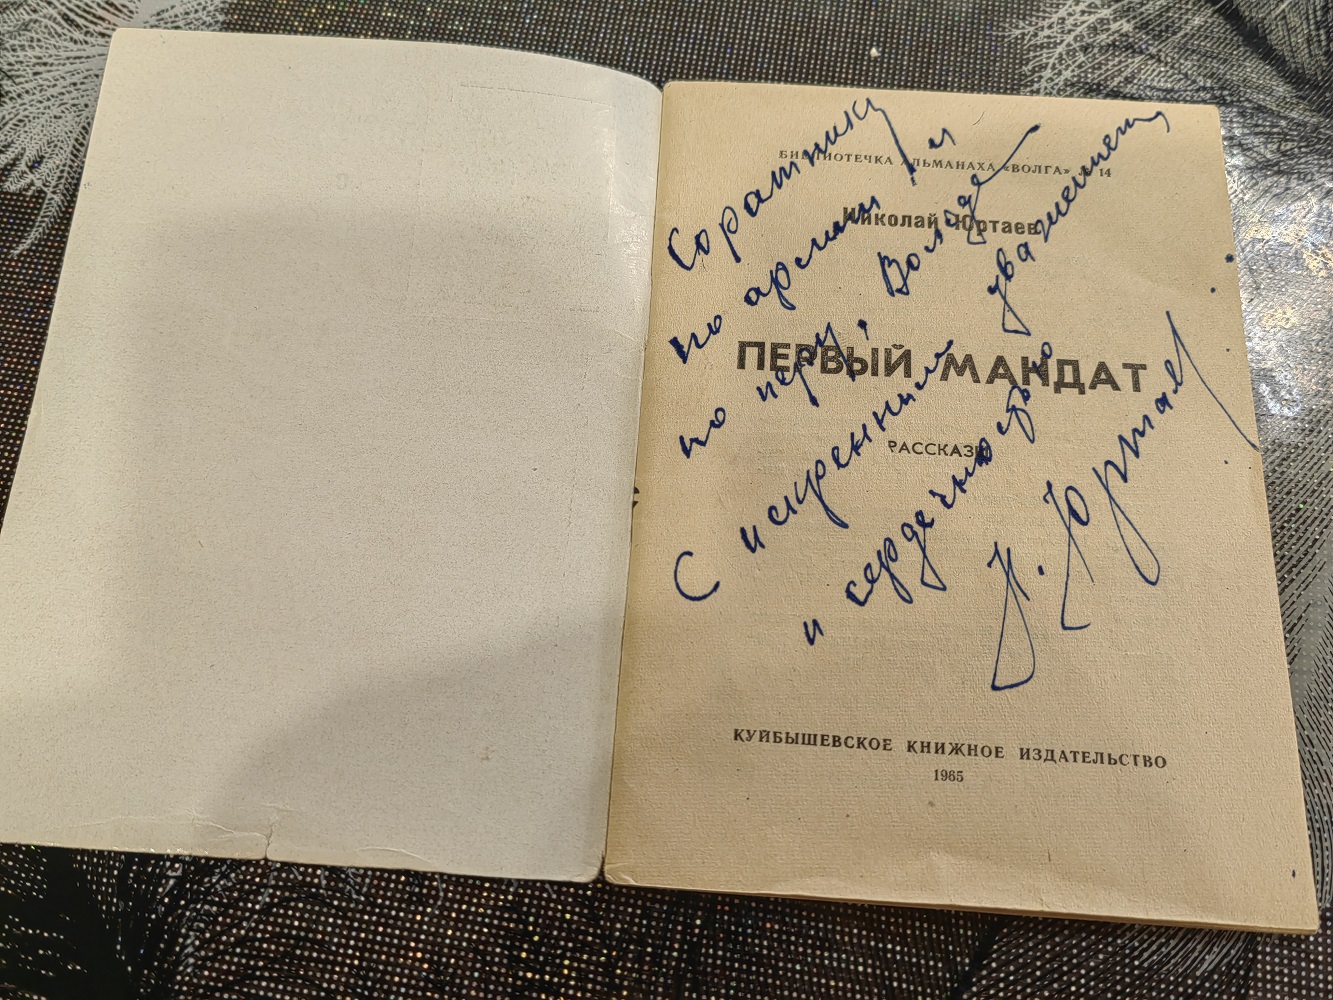 БИБЛИОТЕЧКА АЛЬМАНАХА «ВОЛГА» № 14
Николай Юртаев
ПЕРВЫЙ МАНДАТ
РАССКАЗЫ
КУЙБЫШЕВСКОЕ КНИЖНОЕ ИЗДАТЕЛЬСТВО
1965
Соратнику
по армии и
по перу, Володе
С искренним уважением,
и сердечностью
Н. Юртаев